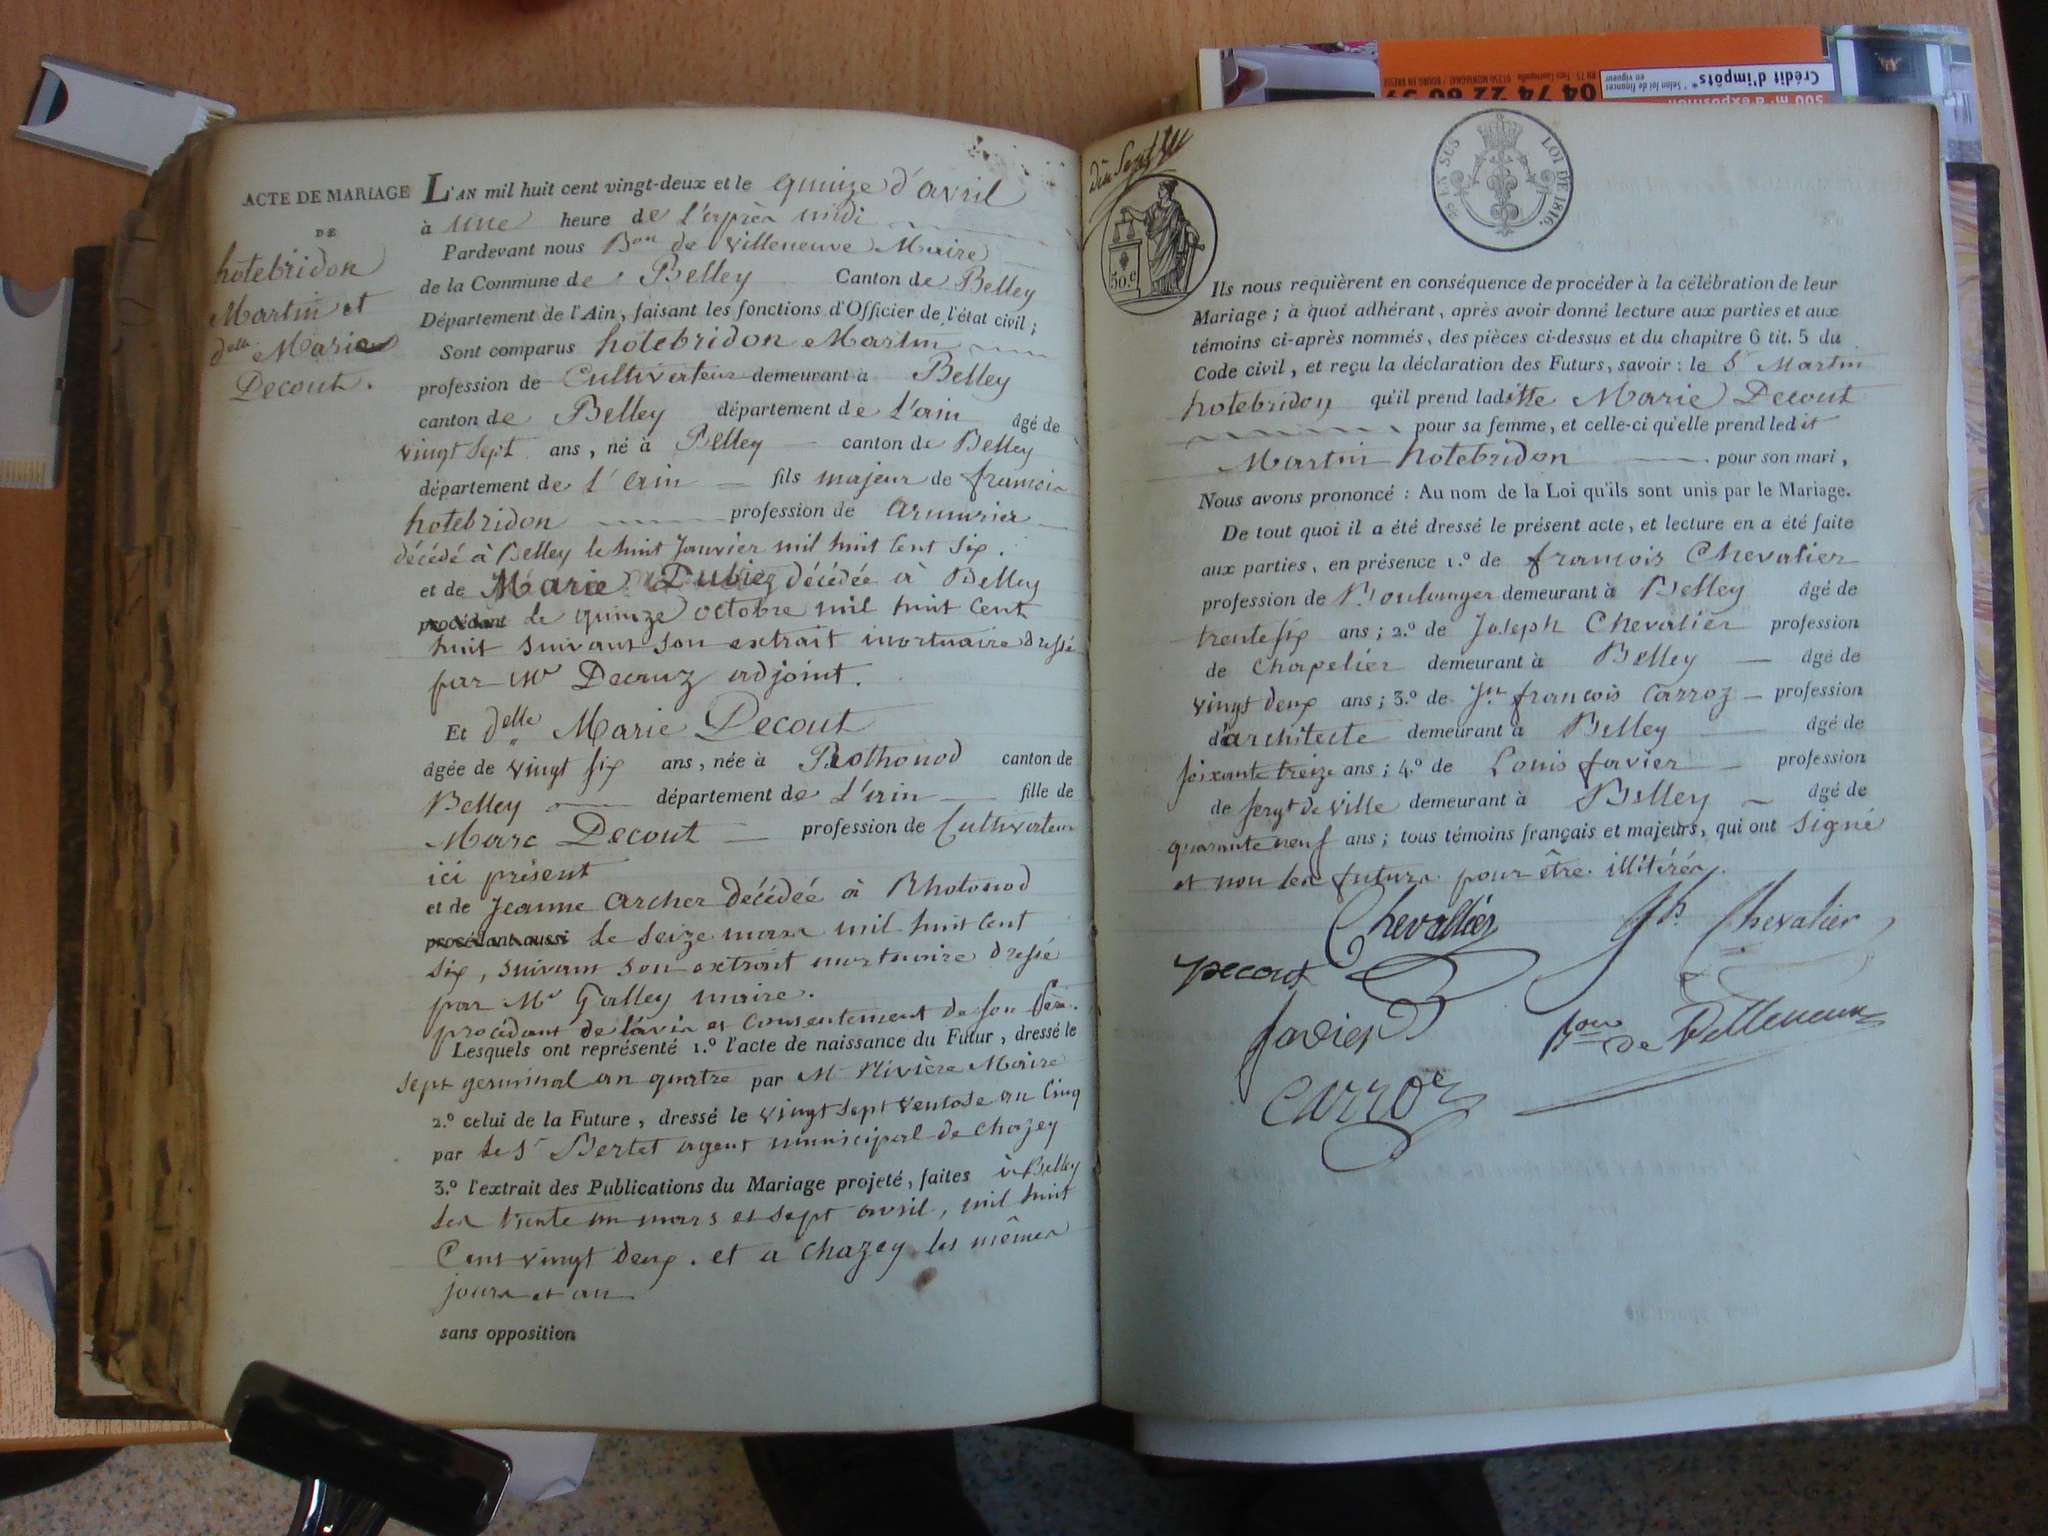 ACTE DE MARIAGE
DE
hotebridon
Martin et
delle Marie
Decout.
L'AN mil huit cent vingt-deux et le quinze d'avril
à une heure de L'après midi
Pardevant nous Bon de Villeneuve Maire
de la Commune de Belley Canton de Belley
Département de l'Ain, faisant les fonctions d'Officier de l'état civil;
Sont comparus hotebridon Martin
profession de Cultivateur demeurant à Belley
canton de Belley département de L'ain âgé de
vingt sept ans, né à Belley canton de Belley
département de L'ain fils majeur de francois
hotebridon profession de armurier
décédé à Belley le huit Janvier mil huit Cent Six.
et de Marie Dubiez décédée à Belley
procédant le quinze octobre mil huit Cent
huit suivant son extrait mortuaire dressé
par Mr Decruz adjoint.
Et delle Marie Decout
âgée de vingt six ans, née à Rothonod canton de
Belley département de L'ain fille de
Marc Decout profession de Cultivateur
ici présent
et de Jeanne Archer décédée à Rhotonod
procédant aussi le seize mars mil huit Cent
six, suivant son extrait mortuaire dressé
par Mr Galley maire.
procédant de l'avis et Consentement de son père.
Lesquels ont représenté 1.º l'acte de naissance du Futur, dressé le
sept germinal an quatre par Mr Rivière Maire
2.º celui de la Future, dressé le vingt sept ventose an Cinq
par le Sr Bertet agent municipal de Chazey
3.º l'extrait des Publications du Mariage projeté, faites à Belley
les trente un mars et sept avril, mil huit
Cent vingt deux. et a Chazey les mêmes
jours et an
sans opposition
50.c
EN SUS
LOI DE 1816.
Ils nous requièrent en conséquence de procéder à la célébration de leur
Mariage; à quoi adhérant, après avoir donné lecture aux parties et aux
témoins ci-après nommés, des pièces ci-dessus et du chapitre 6 tit. 5 du
Code civil, et reçu la déclaration des Futurs, savoir: le Sr Martin
hotebridon qu'il prend laditte Marie Decout
pour sa femme, et celle-ci qu'elle prend ledit
Martin hotebridon pour son mari,
Nous avons prononcé: Au nom de la Loi qu'ils sont unis par le Mariage.
De tout quoi il a été dressé le présent acte, et lecture en a été faite
aux parties, en présence 1.º de francois Chevalier
profession de Boulanger demeurant à Belley âgé de
trente six ans; 2.º de Joseph Chevalier profession
de Chapelier demeurant à Belley âgé de
vingt deux ans; 3.º de Jn françois Carroz profession
d'architecte demeurant à Belley âgé de
soixante treize ans; 4.º de Louis favier profession
de sergt de ville demeurant à Belley âgé de
quarante neuf ans; tous témoins français et majeurs, qui ont signé
et non les futurs pour être illitérés.
Chevallier
Jh. Chevalier
Decout
favier
Bon de Villeneuve
Carroz
Crédit d'impôts*
* Selon loi de finances
en vigueur